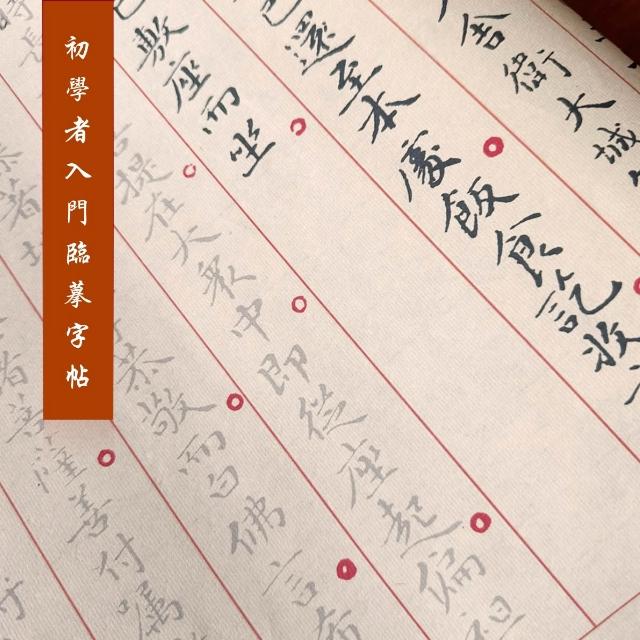 初學者入門臨摹字帖
舍衛大城
已還至本處飯食訖收
敷座而坐
提在大衆中即從座起偏袒
恭敬而白佛言希
菩薩善付囑